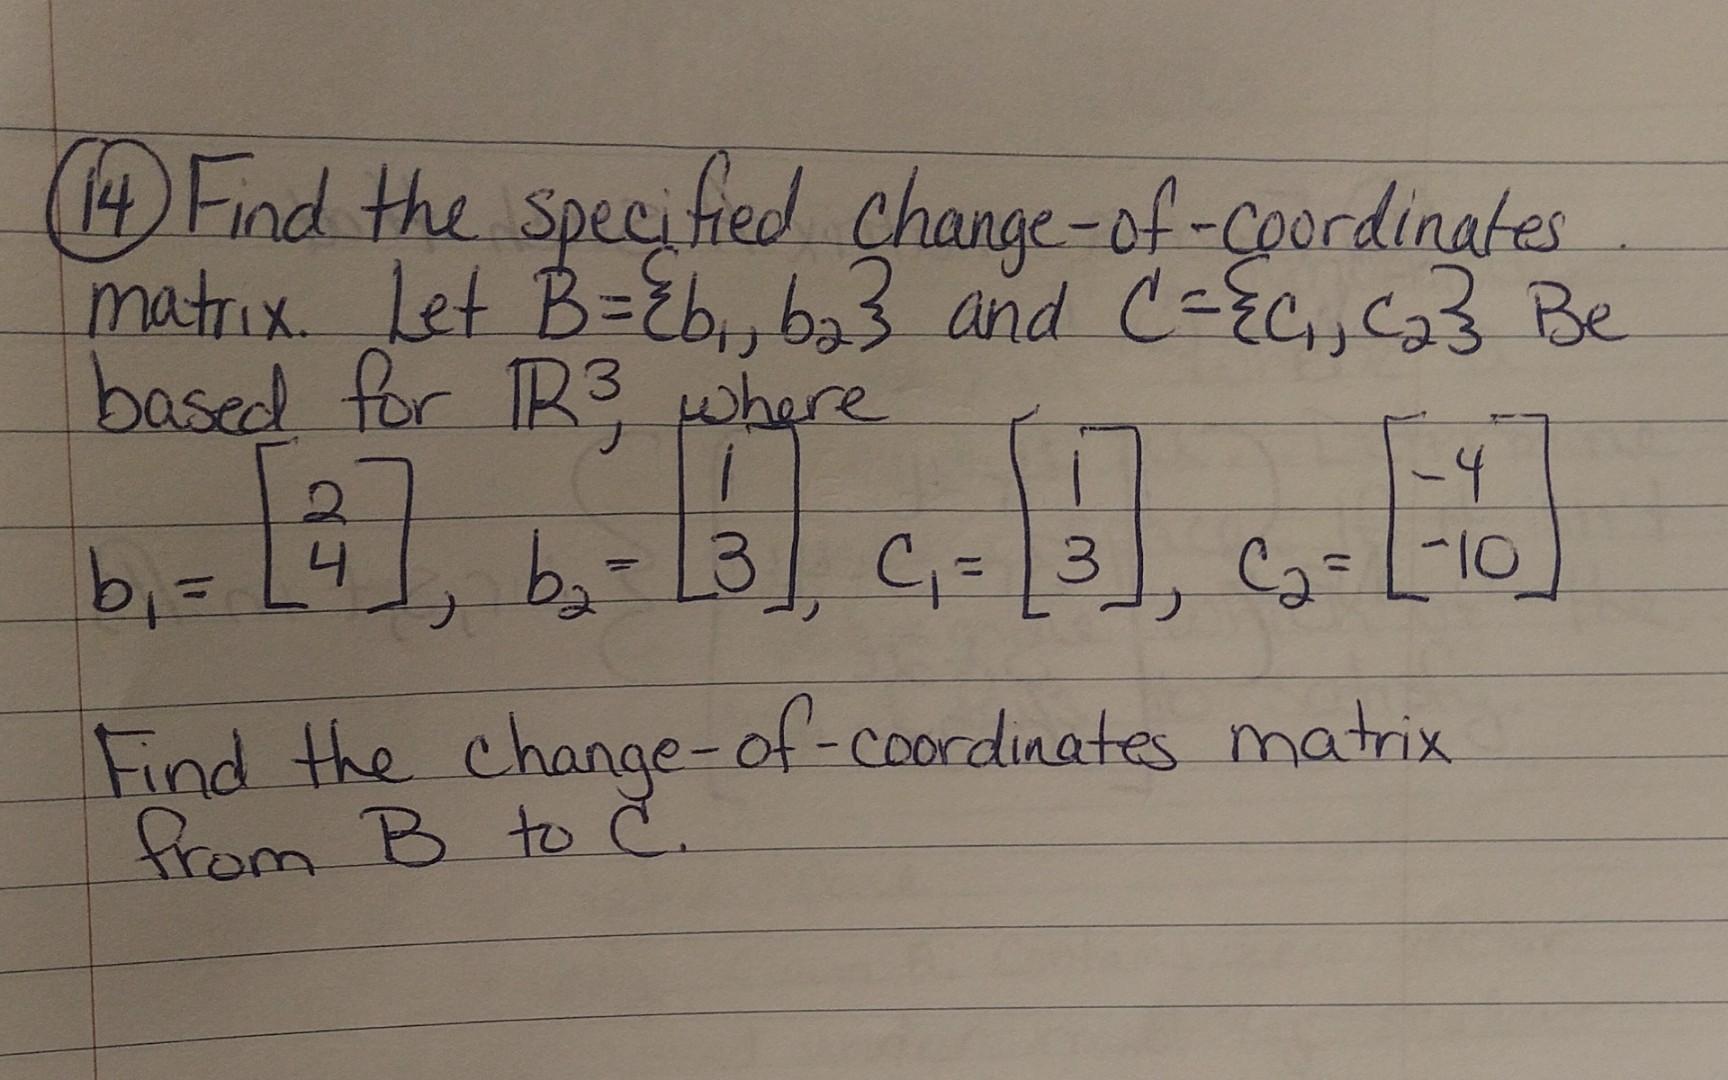 14 Find the specified change-of-coordinates
matrix. Let B={b₁, b₂} and C={c₁, c₂} Be
based for ℝ³, where
b₁ = [2 4], b₂ = [1 3], c₁ = [1 3], c₂ = [-4 -10]
Find the change-of-coordinates matrix
from B to C.